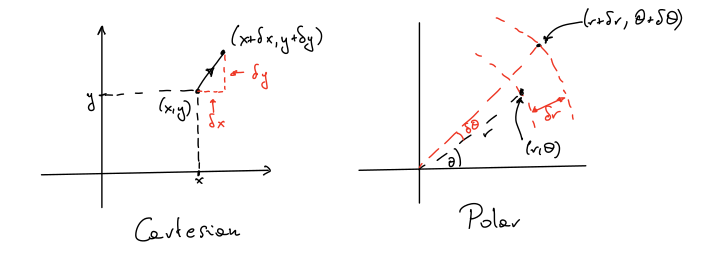 (x+δx, y+δy)
δy
y
(x,y)
δx
x
Cartesian
(r+δr, θ+δθ)
δθ
δr
r
θ
(r,θ)
Polar